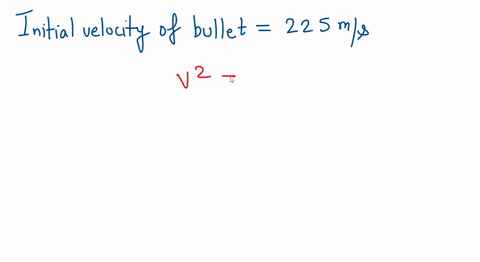 Initial velocity of bullet = 225 m/s
v² -